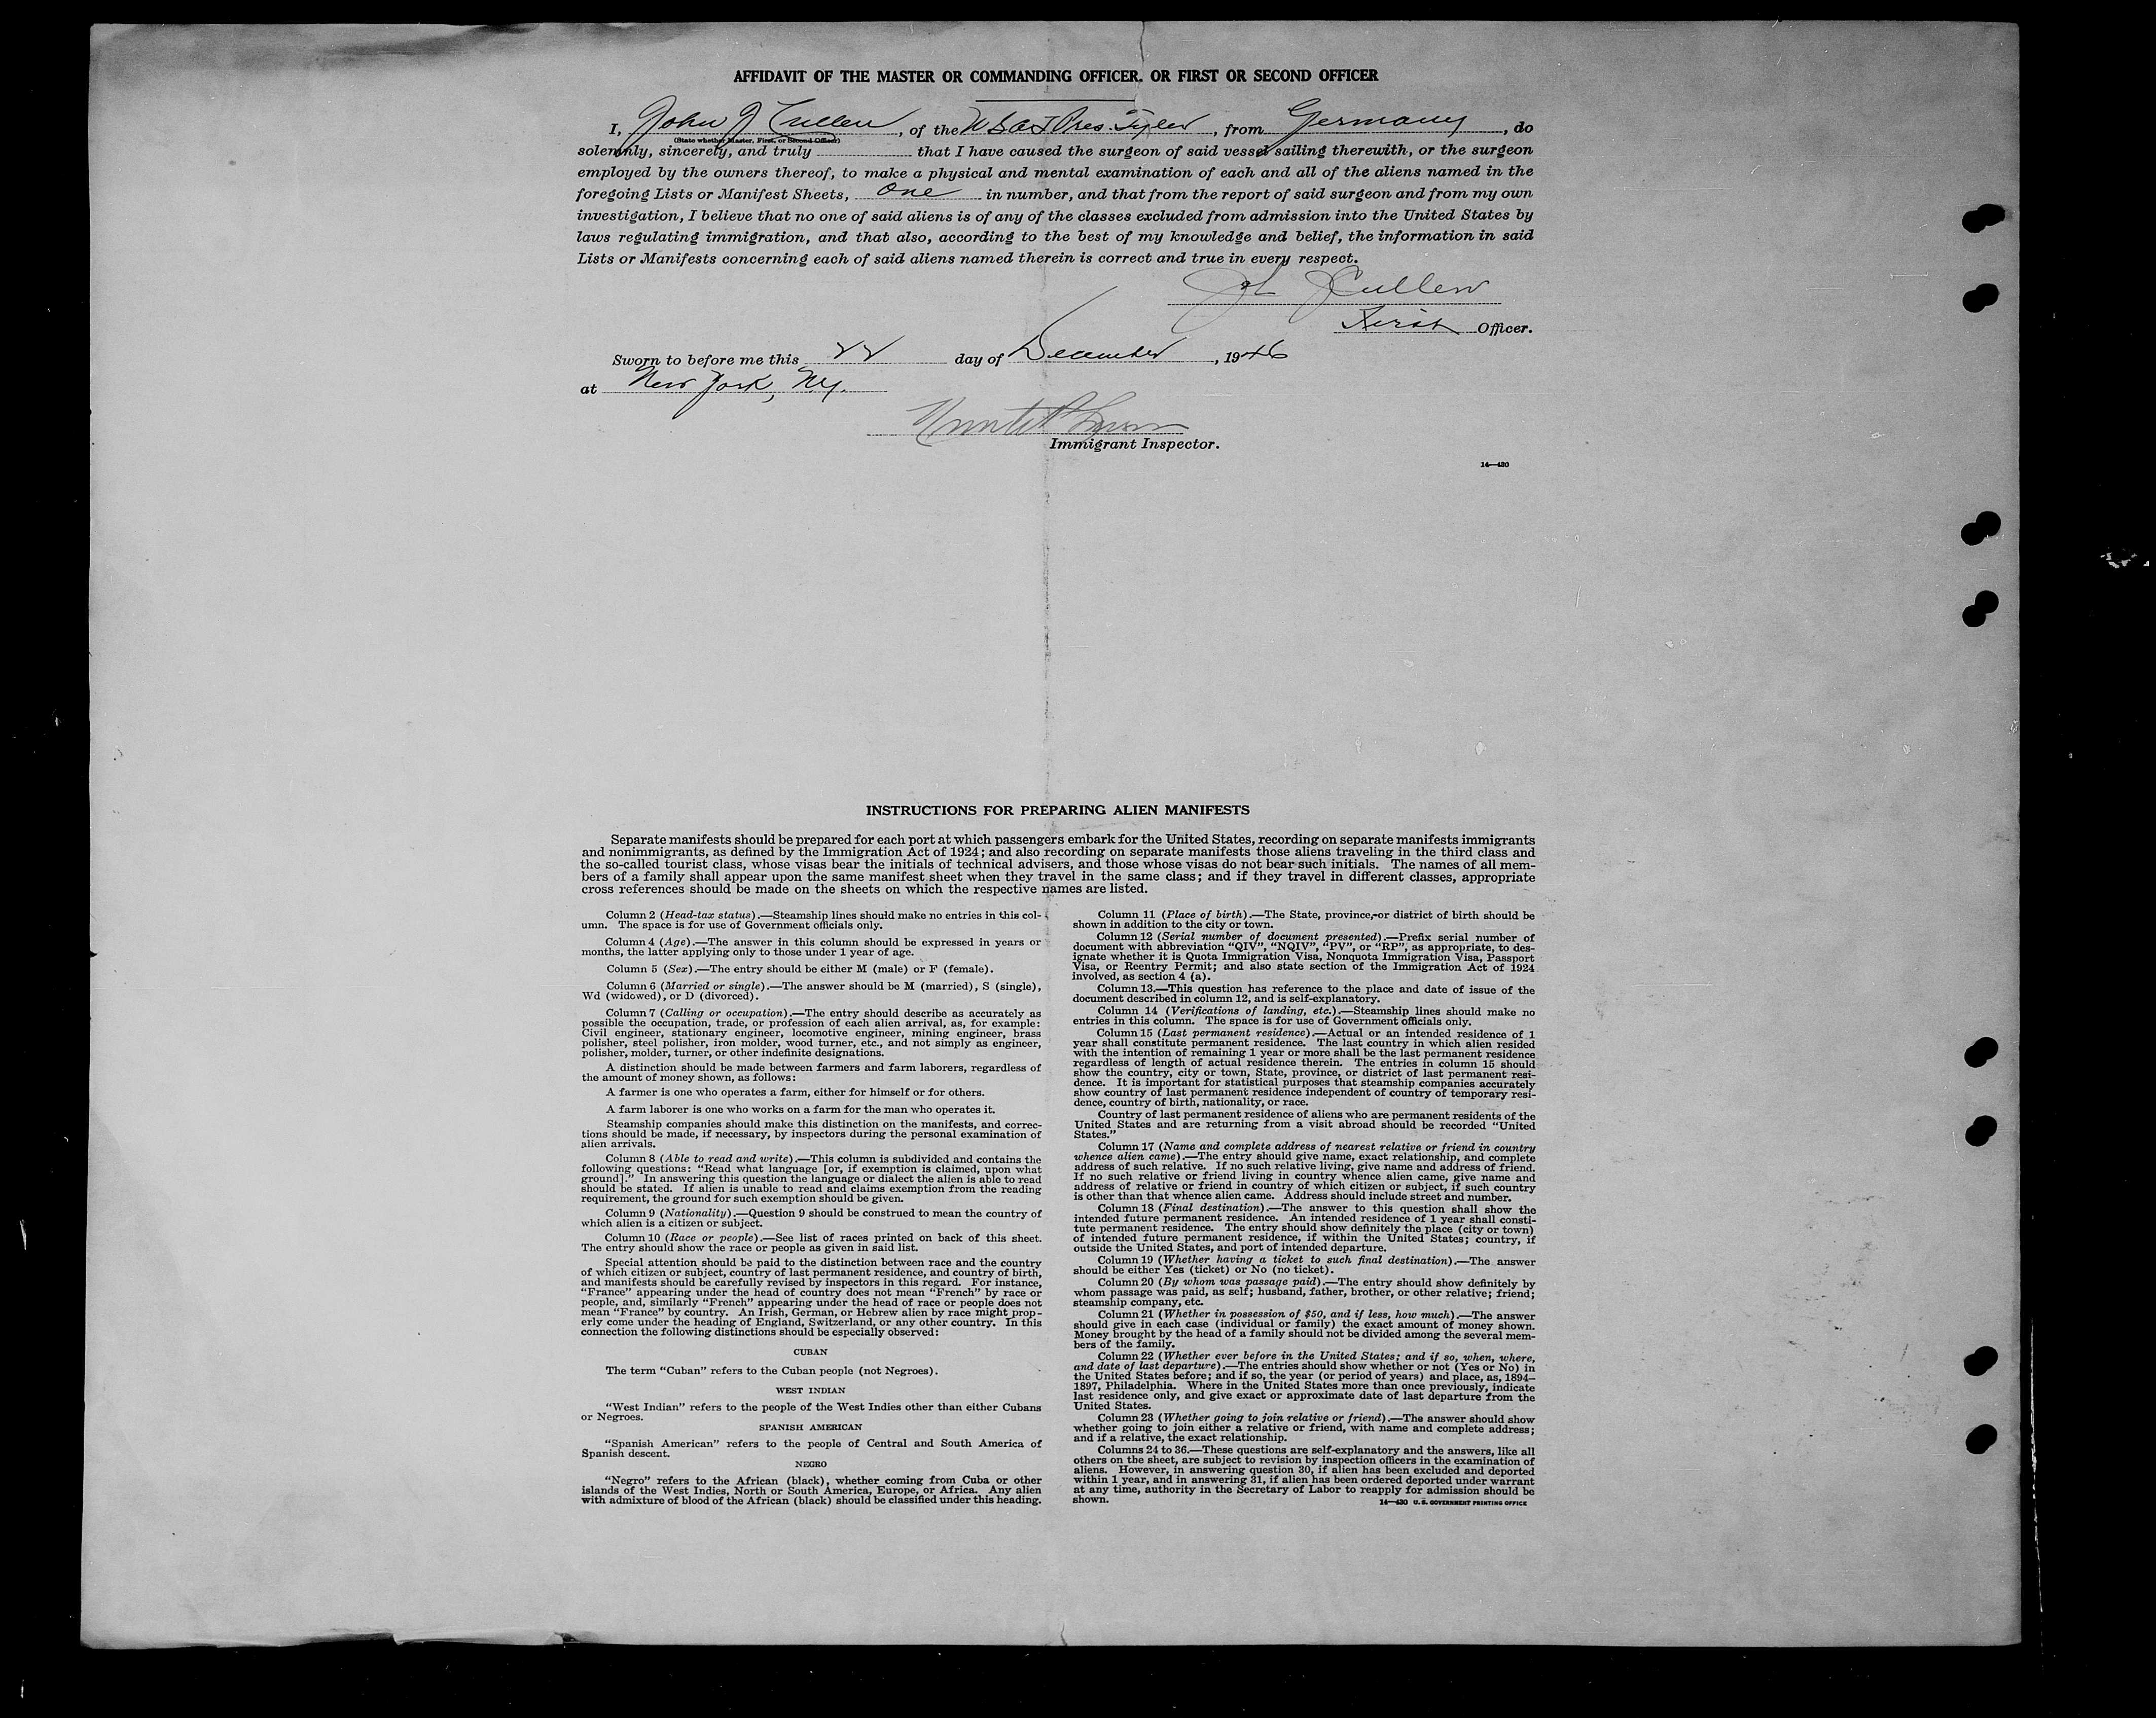 AFFIDAVIT OF THE MASTER OR COMMANDING OFFICER, OR FIRST OR SECOND OFFICER
I, John J Cullen, of the USAT Pres. Tyler, from Germany, do
(State whether Master, First, or Second Officer)
solemnly, sincerely, and truly that I have caused the surgeon of said vessel sailing therewith, or the surgeon
employed by the owners thereof, to make a physical and mental examination of each and all of the aliens named in the
foregoing Lists or Manifest Sheets, one in number, and that from the report of said surgeon and from my own
investigation, I believe that no one of said aliens is of any of the classes excluded from admission into the United States by
laws regulating immigration, and that also, according to the best of my knowledge and belief, the information in said
Lists or Manifests concerning each of said aliens named therein is correct and true in every respect.
J Cullen
First Officer.
Sworn to before me this 22 day of December, 1946
at New York, NY.
Immigrant Inspector.
14—430
INSTRUCTIONS FOR PREPARING ALIEN MANIFESTS
Separate manifests should be prepared for each port at which passengers embark for the United States, recording on separate manifests immigrants
and nonimmigrants, as defined by the Immigration Act of 1924; and also recording on separate manifests those aliens traveling in the third class and
the so-called tourist class, whose visas bear the initials of technical advisers, and those whose visas do not bear such initials. The names of all mem-
bers of a family shall appear upon the same manifest sheet when they travel in the same class; and if they travel in different classes, appropriate
cross references should be made on the sheets on which the respective names are listed.
Column 2 (Head-tax status).—Steamship lines should make no entries in this col-
umn. The space is for use of Government officials only.
Column 4 (Age).—The answer in this column should be expressed in years or
months, the latter applying only to those under 1 year of age.
Column 5 (Sex).—The entry should be either M (male) or F (female).
Column 6 (Married or single).—The answer should be M (married), S (single),
Wd (widowed), or D (divorced).
Column 7 (Calling or occupation).—The entry should describe as accurately as
possible the occupation, trade, or profession of each alien arrival, as, for example:
Civil engineer, stationary engineer, locomotive engineer, mining engineer, brass
polisher, steel polisher, iron molder, wood turner, etc., and not simply as engineer,
polisher, molder, turner, or other indefinite designations.
A distinction should be made between farmers and farm laborers, regardless of
the amount of money shown, as follows:
A farmer is one who operates a farm, either for himself or for others.
A farm laborer is one who works on a farm for the man who operates it.
Steamship companies should make this distinction on the manifests, and correc-
tions should be made, if necessary, by inspectors during the personal examination of
alien arrivals.
Column 8 (Able to read and write).—This column is subdivided and contains the
following questions: “Read what language [or, if exemption is claimed, upon what
ground].” In answering this question the language or dialect the alien is able to read
should be stated. If alien is unable to read and claims exemption from the reading
requirement, the ground for such exemption should be given.
Column 9 (Nationality).—Question 9 should be construed to mean the country of
which alien is a citizen or subject.
Column 10 (Race or people).—See list of races printed on back of this sheet.
The entry should show the race or people as given in said list.
Special attention should be paid to the distinction between race and the country
of which citizen or subject, country of last permanent residence, and country of birth,
and manifests should be carefully revised by inspectors in this regard. For instance,
“France” appearing under the head of country does not mean “French” by race or
people, and, similarly “French” appearing under the head of race or people does not
mean “France” by country. An Irish, German, or Hebrew alien by race might prop-
erly come under the heading of England, Switzerland, or any other country. In this
connection the following distinctions should be especially observed:
CUBAN
The term “Cuban” refers to the Cuban people (not Negroes).
WEST INDIAN
“West Indian” refers to the people of the West Indies other than either Cubans
or Negroes.
SPANISH AMERICAN
“Spanish American” refers to the people of Central and South America of
Spanish descent.
NEGRO
“Negro” refers to the African (black), whether coming from Cuba or other
islands of the West Indies, North or South America, Europe, or Africa. Any alien
with admixture of blood of the African (black) should be classified under this heading.
Column 11 (Place of birth).—The State, province, or district of birth should be
shown in addition to the city or town.
Column 12 (Serial number of document presented).—Prefix serial number of
document with abbreviation “QIV”, “NQIV”, “PV”, or “RP”, as appropriate, to des-
ignate whether it is Quota Immigration Visa, Nonquota Immigration Visa, Passport
Visa, or Reentry Permit; and also state section of the Immigration Act of 1924
involved, as section 4 (a).
Column 13.—This question has reference to the place and date of issue of the
document described in column 12, and is self-explanatory.
Column 14 (Verifications of landing, etc.).—Steamship lines should make no
entries in this column. The space is for use of Government officials only.
Column 15 (Last permanent residence).—Actual or an intended residence of 1
year shall constitute permanent residence. The last country in which alien resided
with the intention of remaining 1 year or more shall be the last permanent residence
regardless of length of actual residence therein. The entries in column 15 should
show the country, city or town, State, province, or district of last permanent resi-
dence. It is important for statistical purposes that steamship companies accurately
show country of last permanent residence independent of country of temporary resi-
dence, country of birth, nationality, or race.
Country of last permanent residence of aliens who are permanent residents of the
United States and are returning from a visit abroad should be recorded “United
States.”
Column 17 (Name and complete address of nearest relative or friend in country
whence alien came).—The entry should give name, exact relationship, and complete
address of such relative. If no such relative living, give name and address of friend.
If no such relative or friend living in country whence alien came, give name and
address of relative or friend in country of which citizen or subject, if such country
is other than that whence alien came. Address should include street and number.
Column 18 (Final destination).—The answer to this question shall show the
intended future permanent residence. An intended residence of 1 year shall consti-
tute permanent residence. The entry should show definitely the place (city or town)
of intended future permanent residence, if within the United States; country, if
outside the United States, and port of intended departure.
Column 19 (Whether having a ticket to such final destination).—The answer
should be either Yes (ticket) or No (no ticket).
Column 20 (By whom was passage paid).—The entry should show definitely by
whom passage was paid, as self; husband, father, brother, or other relative; friend;
steamship company, etc.
Column 21 (Whether in possession of $50, and if less, how much).—The answer
should give in each case (individual or family) the exact amount of money shown.
Money brought by the head of a family should not be divided among the several mem-
bers of the family.
Column 22 (Whether ever before in the United States; and if so, when, where,
and date of last departure).—The entries should show whether or not (Yes or No) in
the United States before; and if so, the year (or period of years) and place, as, 1894–
1897, Philadelphia. Where in the United States more than once previously, indicate
last residence only, and give exact or approximate date of last departure from the
United States.
Column 23 (Whether going to join relative or friend).—The answer should show
whether going to join either a relative or friend, with name and complete address;
and if a relative, the exact relationship.
Columns 24 to 36.—These questions are self-explanatory and the answers, like all
others on the sheet, are subject to revision by inspection officers in the examination of
aliens. However, in answering question 30, if alien has been excluded and deported
within 1 year, and in answering 31, if alien has been ordered deported under warrant
at any time, authority in the Secretary of Labor to reapply for admission should be
shown.
14—430 U. S. GOVERNMENT PRINTING OFFICE